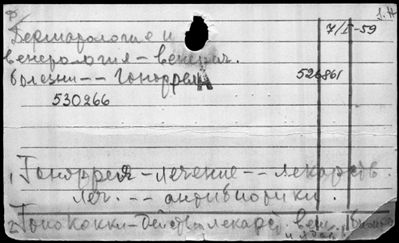 Дерматология и 7/I-59
венерология - венерич.
болезни -- Гоноррея 526861
530266
1, Гоноррея - лечение -- лекарств.
леч. -- антибиотики.
2, Гонококки - действ. лекарств. вещ.
и ядов